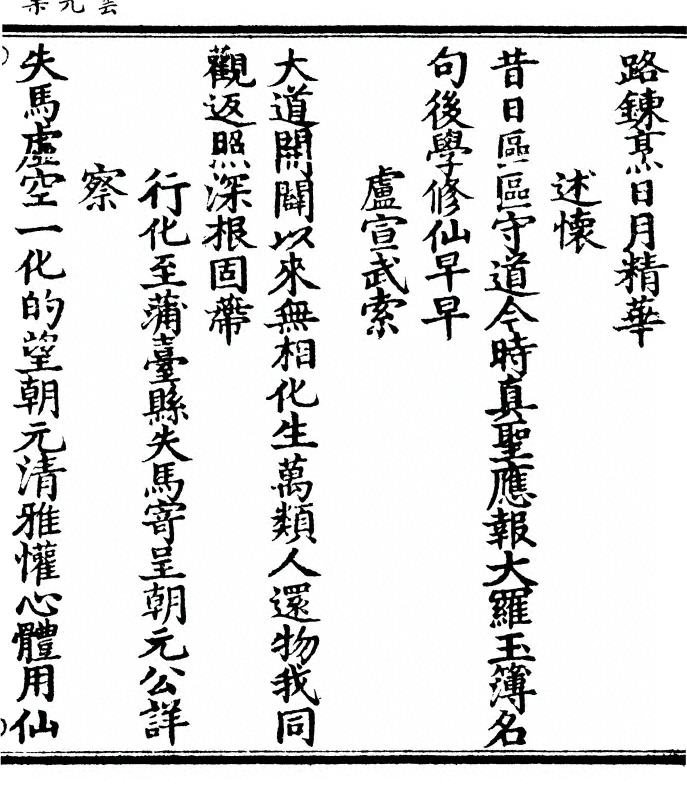 路鍊烹日月精華
述懷
昔日區區守道今時真聖應報大羅玉簿名
句後學修仙早早
盧宣武索
大道開闢以來無相化生萬類人還物我同
觀返照深根固蔕
行化至蒲臺縣失馬寄呈朝元公詳
察
失馬虛空一化的望朝元清雅懽心體用仙